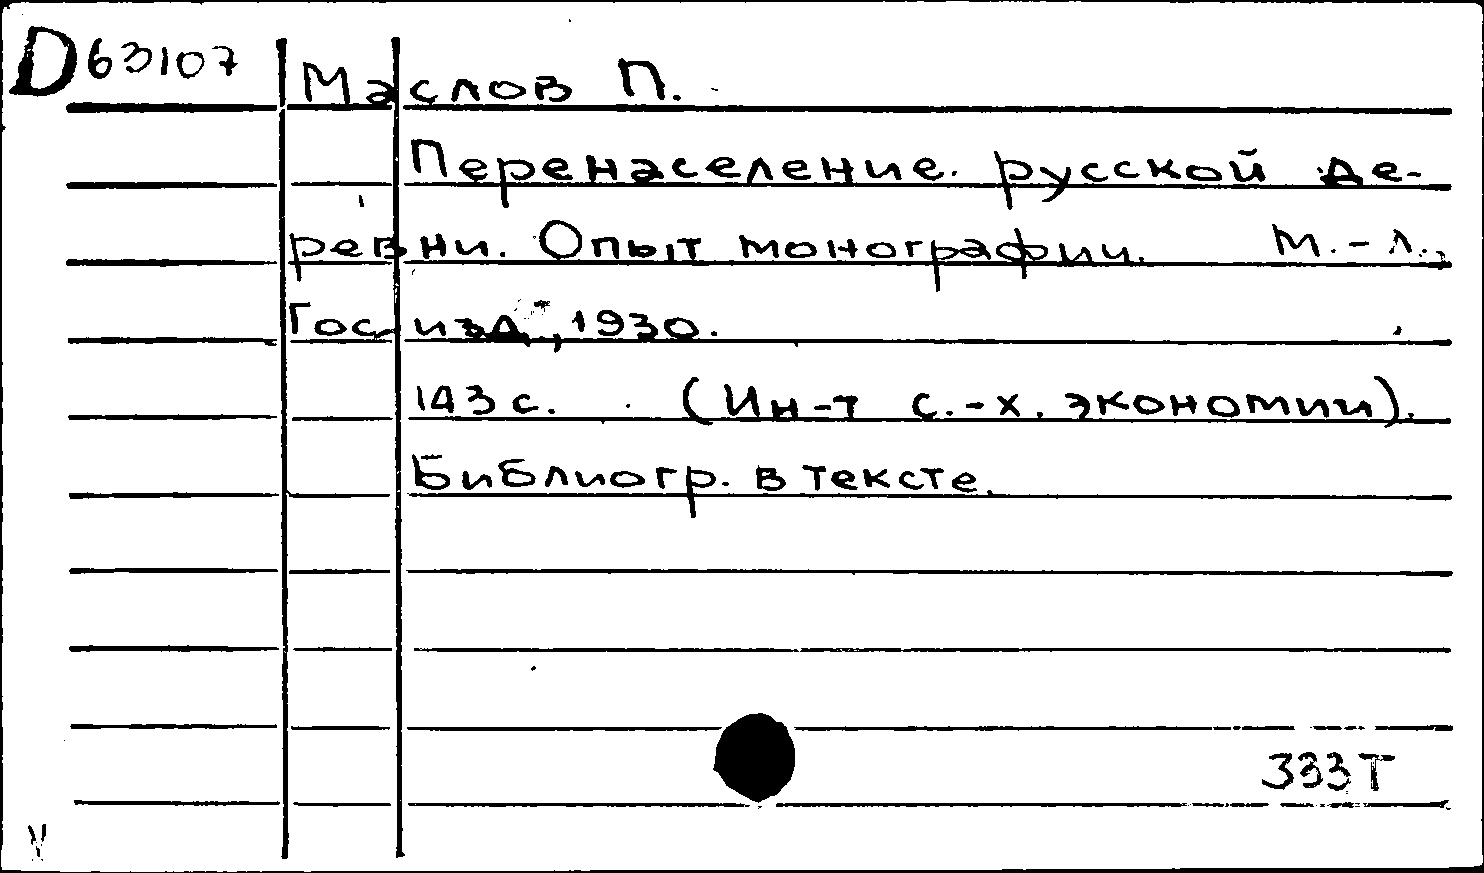 D63107
Маслов П.
Перенаселение русской де-
ревни. Опыт монографии. М.-Л.,
Гос. изд., 1930.
143 с. (Ин-т с.-х. экономии).
Библиогр. в тексте.
333T
V